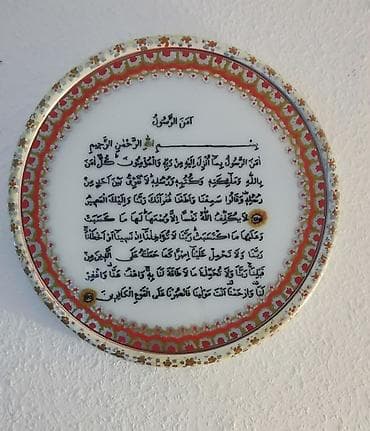 اٰمَنَ الرَّسُولُ
بِسْمِ اللهِ الرَّحْمٰنِ الرَّحِيمِ
اٰمَنَ الرَّسُولُ بِمَٓا اُنْزِلَ اِلَيْهِ مِنْ رَبِّهٖ وَالْمُؤْمِنُونَ كُلٌّ اٰمَنَ
بِاللهِ وَمَلٰٓئِكَتِهٖ وَكُتُبِهٖ وَرُسُلِهٖ لَا نُفَرِّقُ بَيْنَ اَحَدٍ مِنْ
رُسُلِهٖ وَقَالُوا سَمِعْنَا وَاَطَعْنَا غُفْرَانَكَ رَبَّنَا وَاِلَيْكَ الْمَصِيرُ
لَا يُكَلِّفُ اللهُ نَفْسًا اِلَّا وُسْعَهَا لَهَا مَا كَسَبَتْ
وَعَلَيْهَا مَا اكْتَسَبَتْ رَبَّنَا لَا تُؤَاخِذْنَٓا اِنْ نَسِينَٓا اَوْ اَخْطَأْنَا
رَبَّنَا وَلَا تَحْمِلْ عَلَيْنَٓا اِصْرًا كَمَا حَمَلْتَهُ عَلَى الَّذِينَ مِنْ
قَبْلِنَا رَبَّنَا وَلَا تُحَمِّلْنَا مَا لَا طَاقَةَ لَنَا بِهٖ وَاعْفُ عَنَّا وَاغْفِرْ
لَنَا وَارْحَمْنَا اَنْتَ مَوْلٰينَا فَانْصُرْنَا عَلَى الْقَوْمِ الْكَافِرِينَ